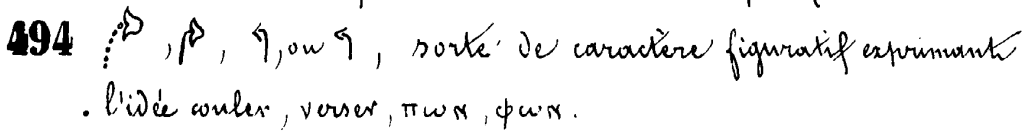 494 , , , ou , sorte de caractère figuratif exprimant
l'idée couler, verser, ⲡⲱⲛ, ⲫⲱⲛ.